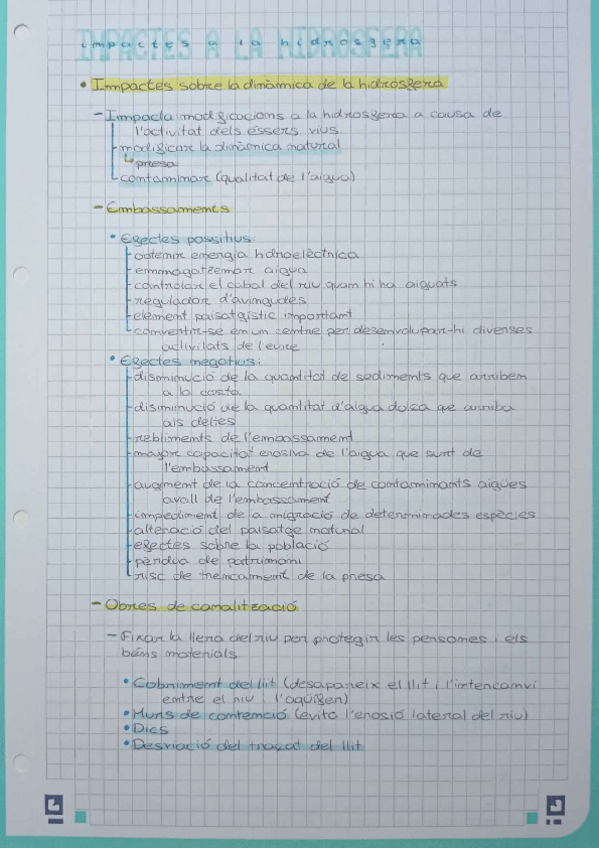 IMPACTES A LA HIDROSFERA
• Impactes sobre la dinàmica de la hidrosfera
- Impacta modificacions a la hidrosfera a causa de
l'activitat dels éssers vius
- modificar la dinàmica natural
↳ presa
- contaminar (qualitat de l'aigua)
- Embassaments
• Efectes possitius:
- obtenir energia hdroelèctrica
- emmagatzemar aigua
- controlar el cabal del riu quan hi ha aiguats
- regulador d'avingudes
- element paisatgístic important
- convertir-se en un centre per desenvolupar-hi diverses
activitats de l'
• Efectes negatius:
- disminució de la quantitat de sediments que arriben
a la costa
- disminució de la quantitat d'aigua dolça que arriba
als deltes
- rebliments de l'embassament
- major capacitat erosiva de l'aigua que surt de
l'embassament
- augment de la concentració de contaminants aigües
avall de l'embassament
- impediment de a migració de determinades espècies
- alteració del paisatge natural
- efectes sobre la població
- pèrdua de patrimoni
- risc de trencament de la presa
- Obres de canalització
- Fixar la llera del riu per protegir les persones i els
béns materials
• Cobriment del llit (desapareix el llit i l'intercanvi
entre el riu i l'aqüífer)
• Murs de contenció (evita l'erosió lateral del riu)
• Dics
• Desviació del traçat del llit